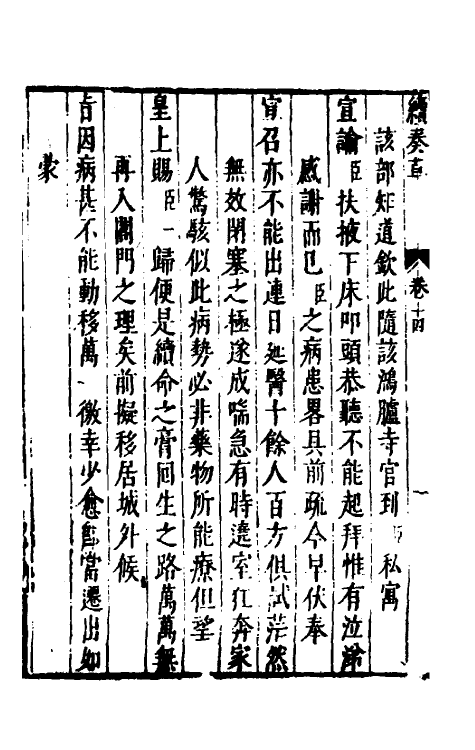 續奏草
卷十四
一
該部知道欽此隨該鴻臚寺官到臣私寓
宣諭臣扶掖下床叩頭恭聽不能起拜惟有泣涕
感謝而已臣之病患畧具前疏今早伏奉
宣召亦不能出連日延醫十餘人百方俱試茫然
無效閉塞之極遂成喘急有時遶室狂奔家
人驚駭似此病勢必非藥物所能療但望
皇上賜臣一歸便是續命之膏囘生之路萬萬無
再入閣門之理矣前擬移居城外候
旨因病甚不能動移萬一徼幸少愈卽當遷出如
蒙